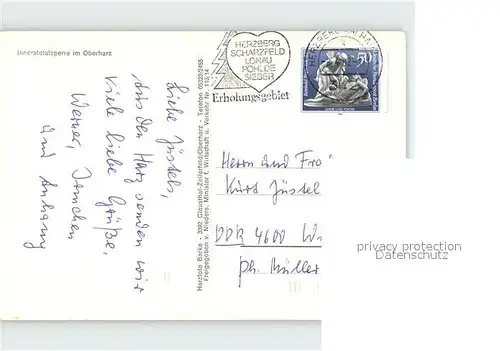 Innerstetalsperre im Oberharz
Liebe Jüstels,
Aus dem Harz senden wir
Viele liebe Grüße,
Werner,
und Anhang
Harzfoto Barke - 3392 Clausthal-Zellerfeld/Oberharz - Telefon 05323/2465
Freigegeben v. Nieders. Minister f. Wirtschaft u. Verkehr Nr.
HERZBERG
SCHARZFELD
LONAU
POHLDE
SIEBER
Erholungsgebiet
HERZBERG AM HARZ
50
Herrn und Fra
Kurt Jüstel
DDR 4600 Wi
Ph. Müller
privacy protection
Datenschutz